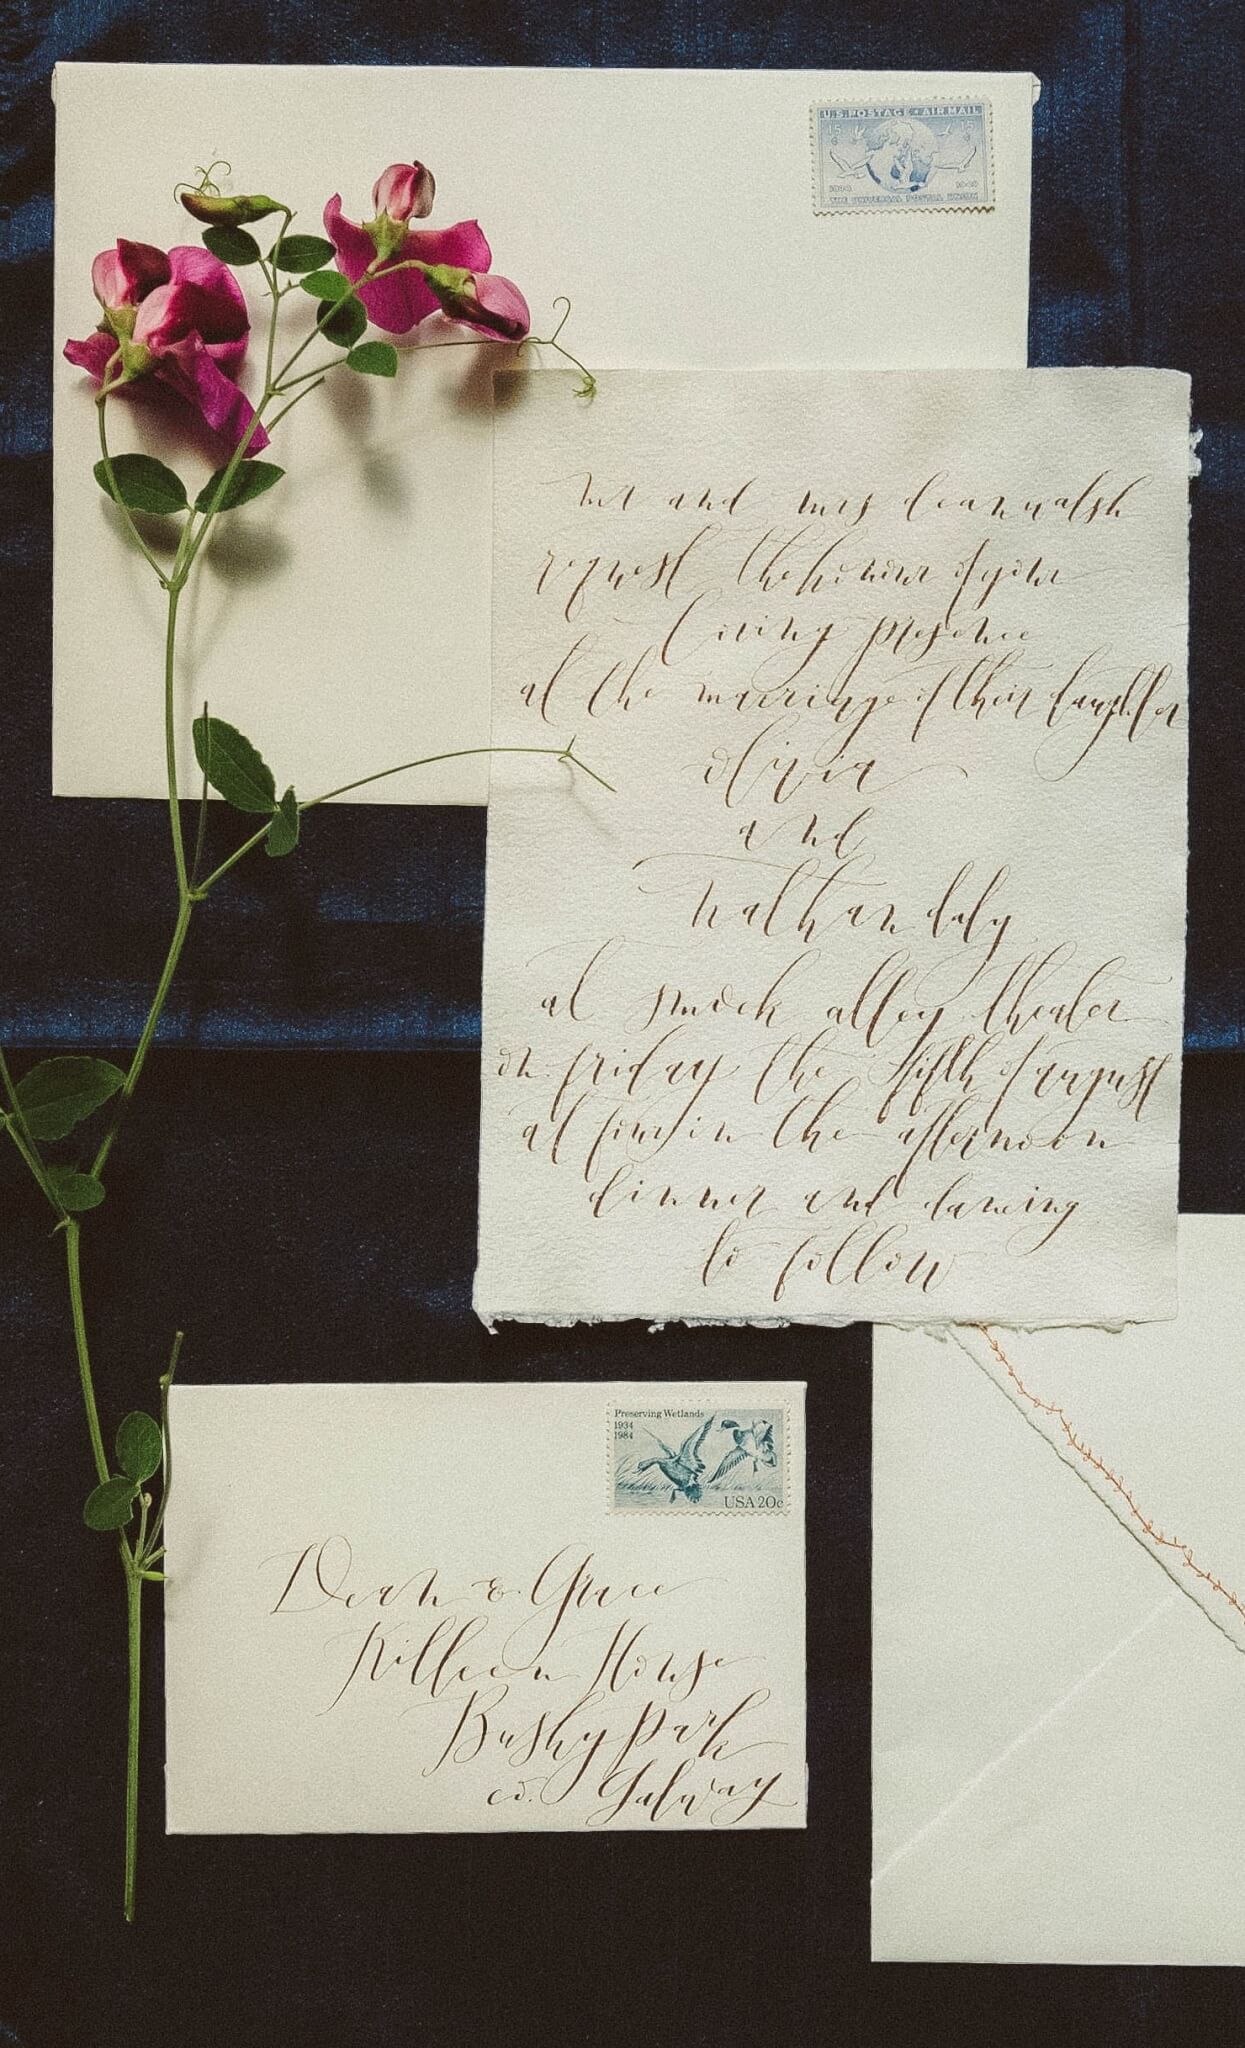 U.S. POSTAGE • AIR MAIL
15 15
THE UNIVERSAL POSTAL UNION
mr and mrs dean walsh
request the honour of your
loving presence
at the marriage of their daughter
olivia
and
nathan daly
at smock alley theater
on friday the fifth of august
at four in the afternoon
dinner and dancing
to follow
Preserving Wetlands
1934
1984
USA 20c
Dean & Grace
Killeen House
Bushypark
co. Galway